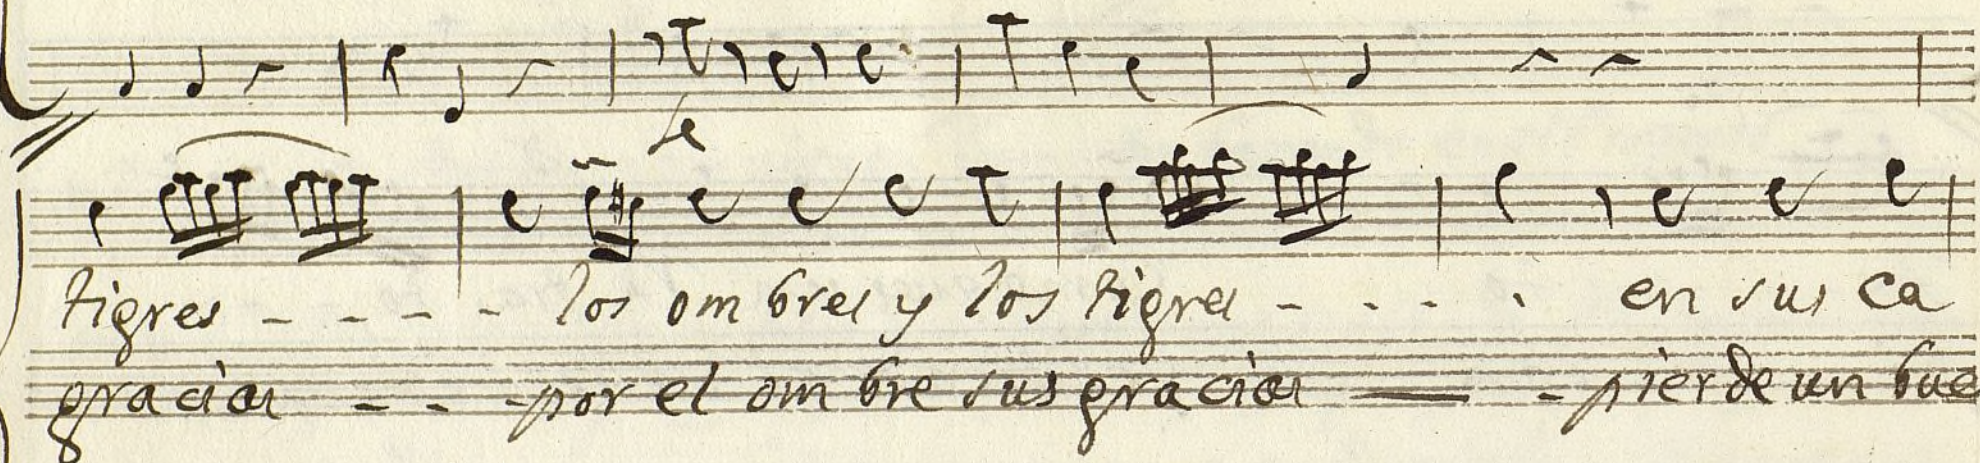 le
tigres - - - - los om bres y los tigres - - - - en sus ca
gracias - - - por el om bre sus gracias - pierde un bue